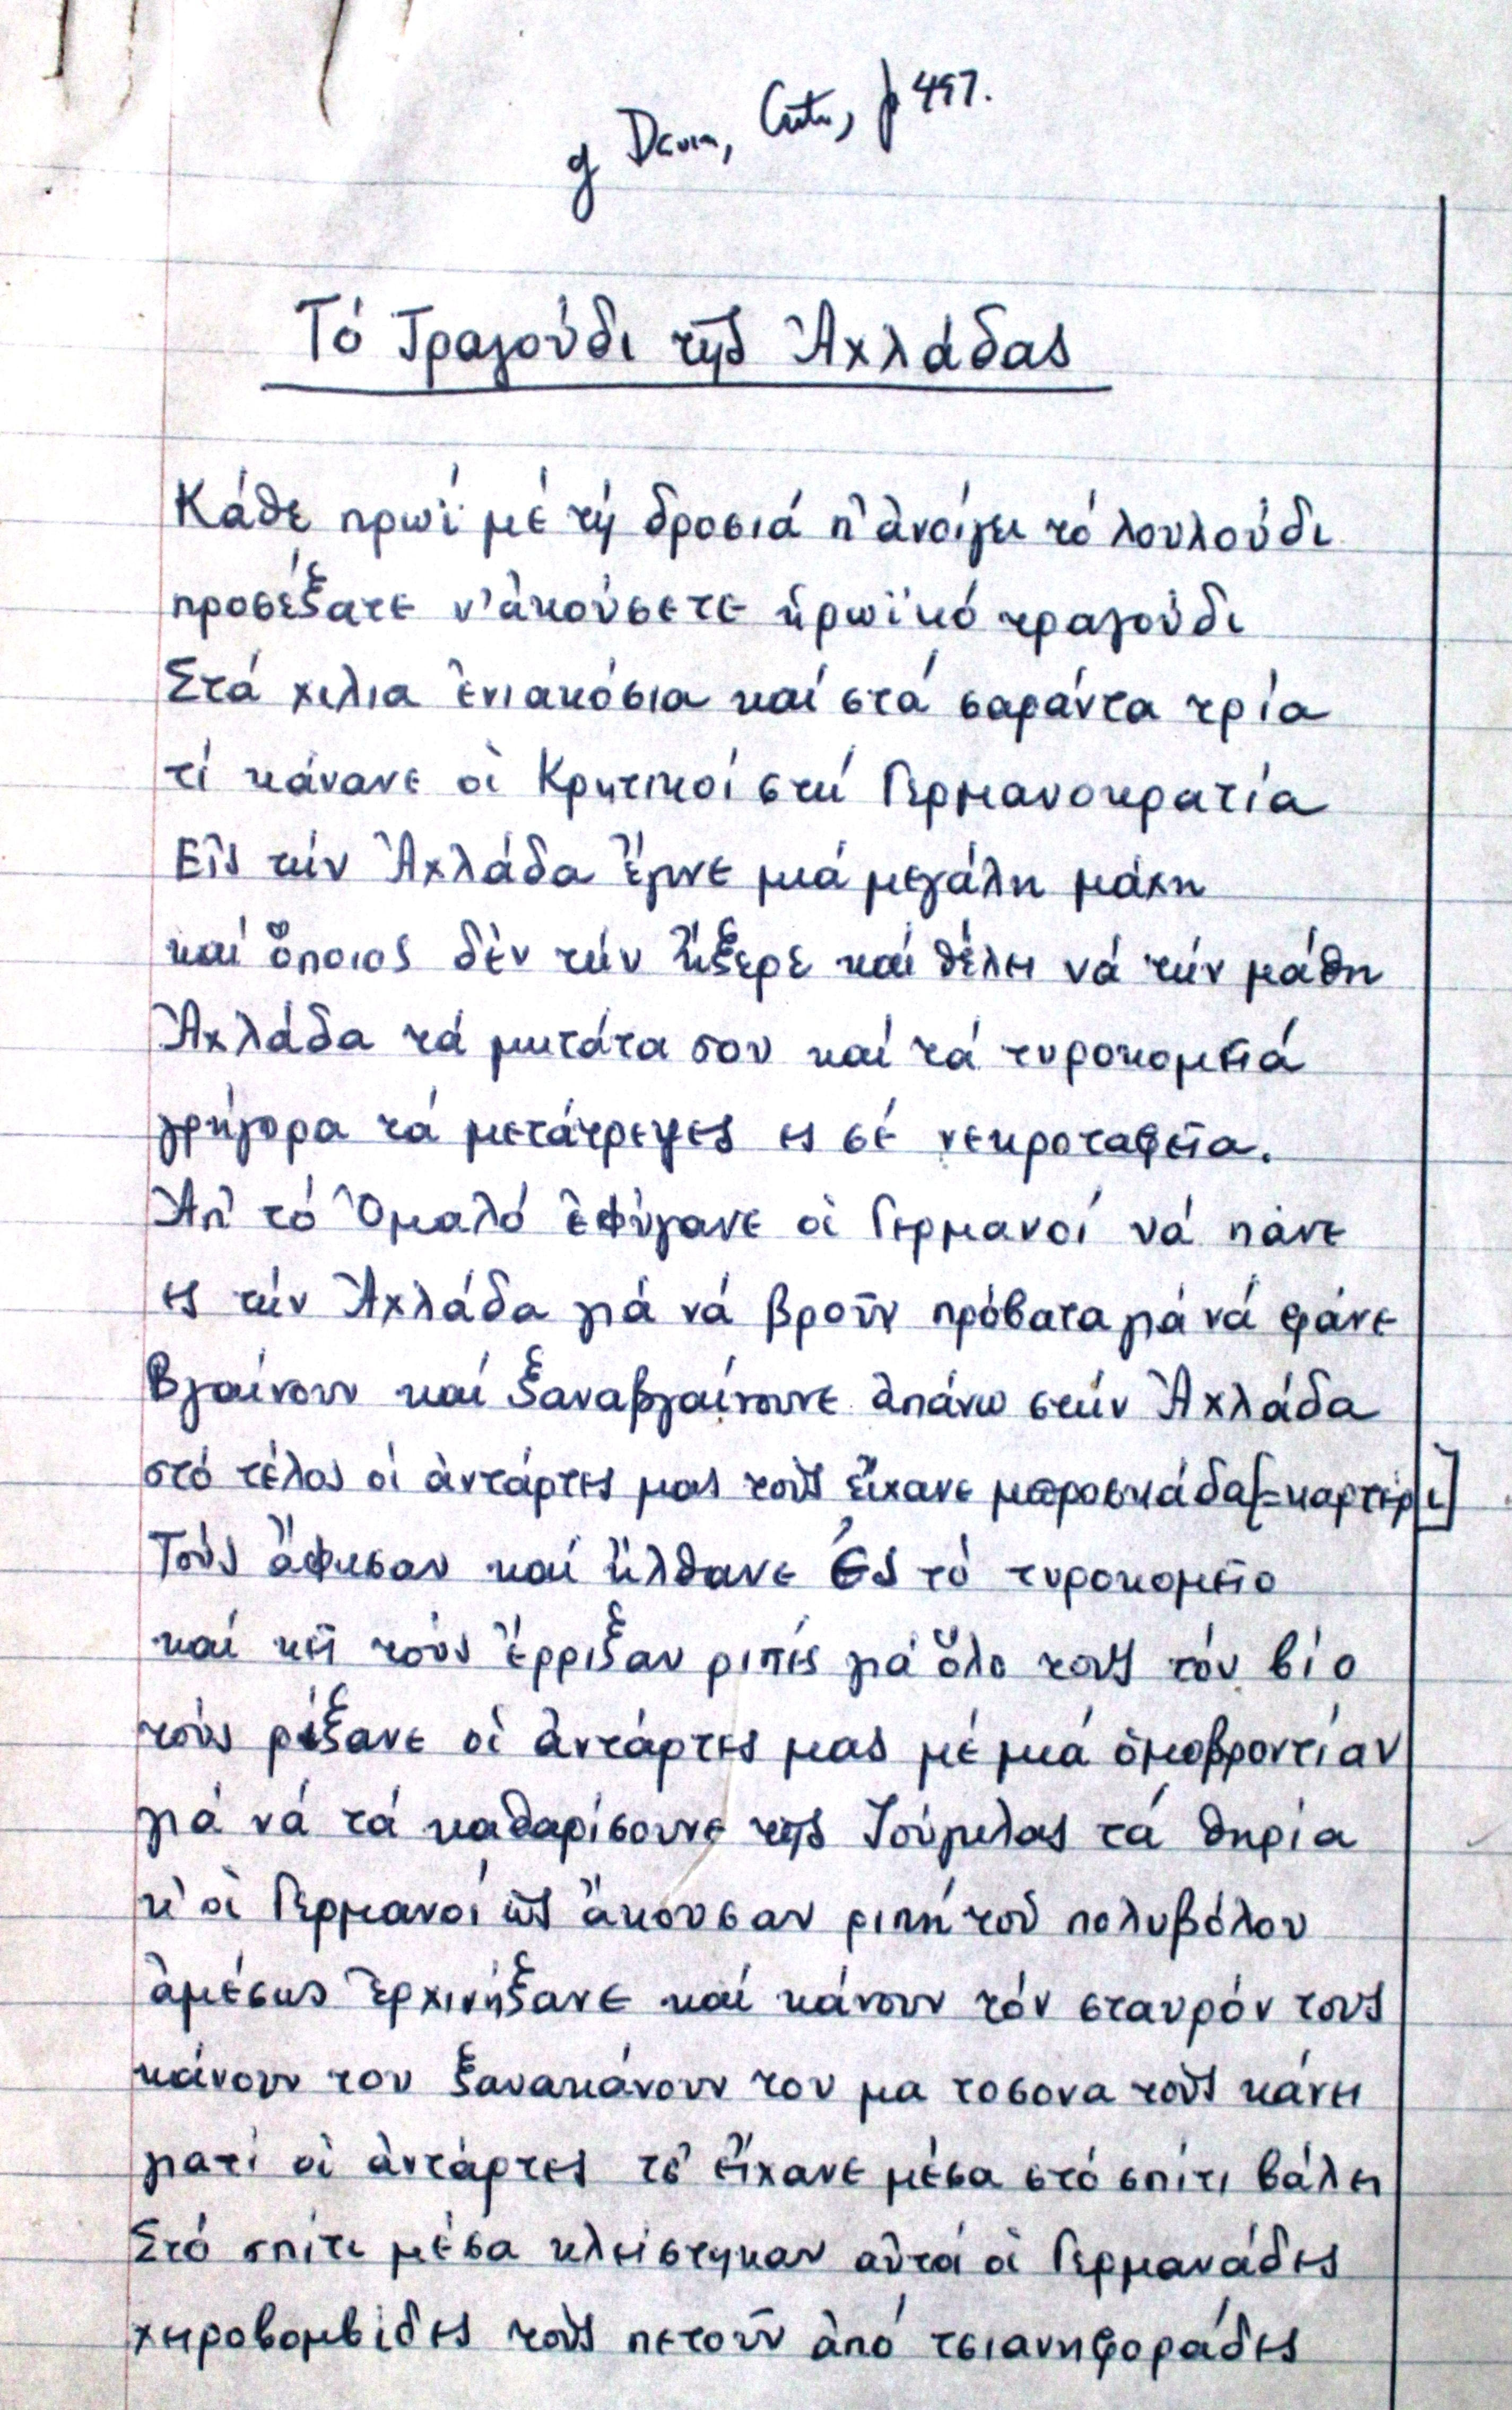 p 497.
Τό Τραγούδι τῆς Ἀχλάδας
Κάθε πρωΐ μέ τή δροσιά π' ἀνοίγει τό λουλούδι
προσέξατε ν' ἀκούσετε ἡρωϊκό τραγούδι
Στά χιλια ἐνιακόσια καί στά σαράντα τρία
τί κάνανε οἱ Κρητικοί στή Γερμανοκρατία
Εἰς τήν Ἀχλάδα ἔγινε μιά μεγάλη μάχη
καί ὅποιος δέν τήν ἤξερε καί θέλει νά τήν μάθη
Ἀχλάδα τά μητάτα σου καί τά τυροκομειά
γρήγορα τά μετάτρεψες εις σέ νεκροταφεῖα.
Ἀπ' τό Ὀμαλό ἐφύγανε οἱ Γερμανοί νά πάνε
εις τήν Ἀχλάδα γιά νά βροῦν πρόβατα γιά νά φάνε
Βγαίνουν καί ξαναβγαίνουνε ἀπάνω στήν Ἀχλάδα
στό τέλος οἱ ἀντάρτες μας τούς εἴχανε μπροσκάδα[=καρτέρι]
Τούς ἄφησαν καί ἤλθανε ἐς τό τυροκομεῖο
καί κεῖ τούς ἔρριξαν ριπές γιά ὅλο τους τόν βίο
τούς ρίξανε οἱ ἀντάρτες μας μέ μιά ὁμοβροντίαν
γιά νά τά καθαρίσουνε τῆς Ζούγκλας τά θηρία
κ' οἱ Γερμανοί ὡς ἄκουσαν ριπή τοῦ πολυβόλου
ἀμέσως ἐρχινήξανε καί κάνουν τόν σταυρόν τους
κάνουν τον ξανακάνουν τον μα τοσονα τούς κάνει
γιατί οἱ ἀντάρτες τσ' εἴχανε μέσα στό σπίτι βάλει
Στό σπίτι μέσα κλείστηκαν αὐτά οἱ Γερμανάδες
χειροβομβίδες τούς πετοῦν ἀπό τσι ανηφοράδες